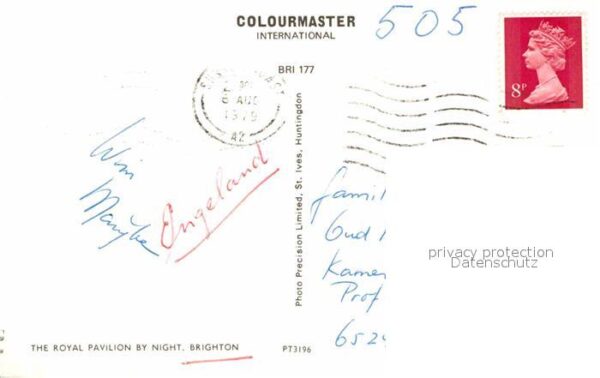 COLOURMASTER
INTERNATIONAL
505
8P
BRI 177
AUG
1979
Wim
Engeland
Photo Precision Limited, St. Ives, Huntingdon
Famil
Oud
Kamer
Prof
652
privacy protection
Datenschutz
THE ROYAL PAVILION BY NIGHT, BRIGHTON
PT3196